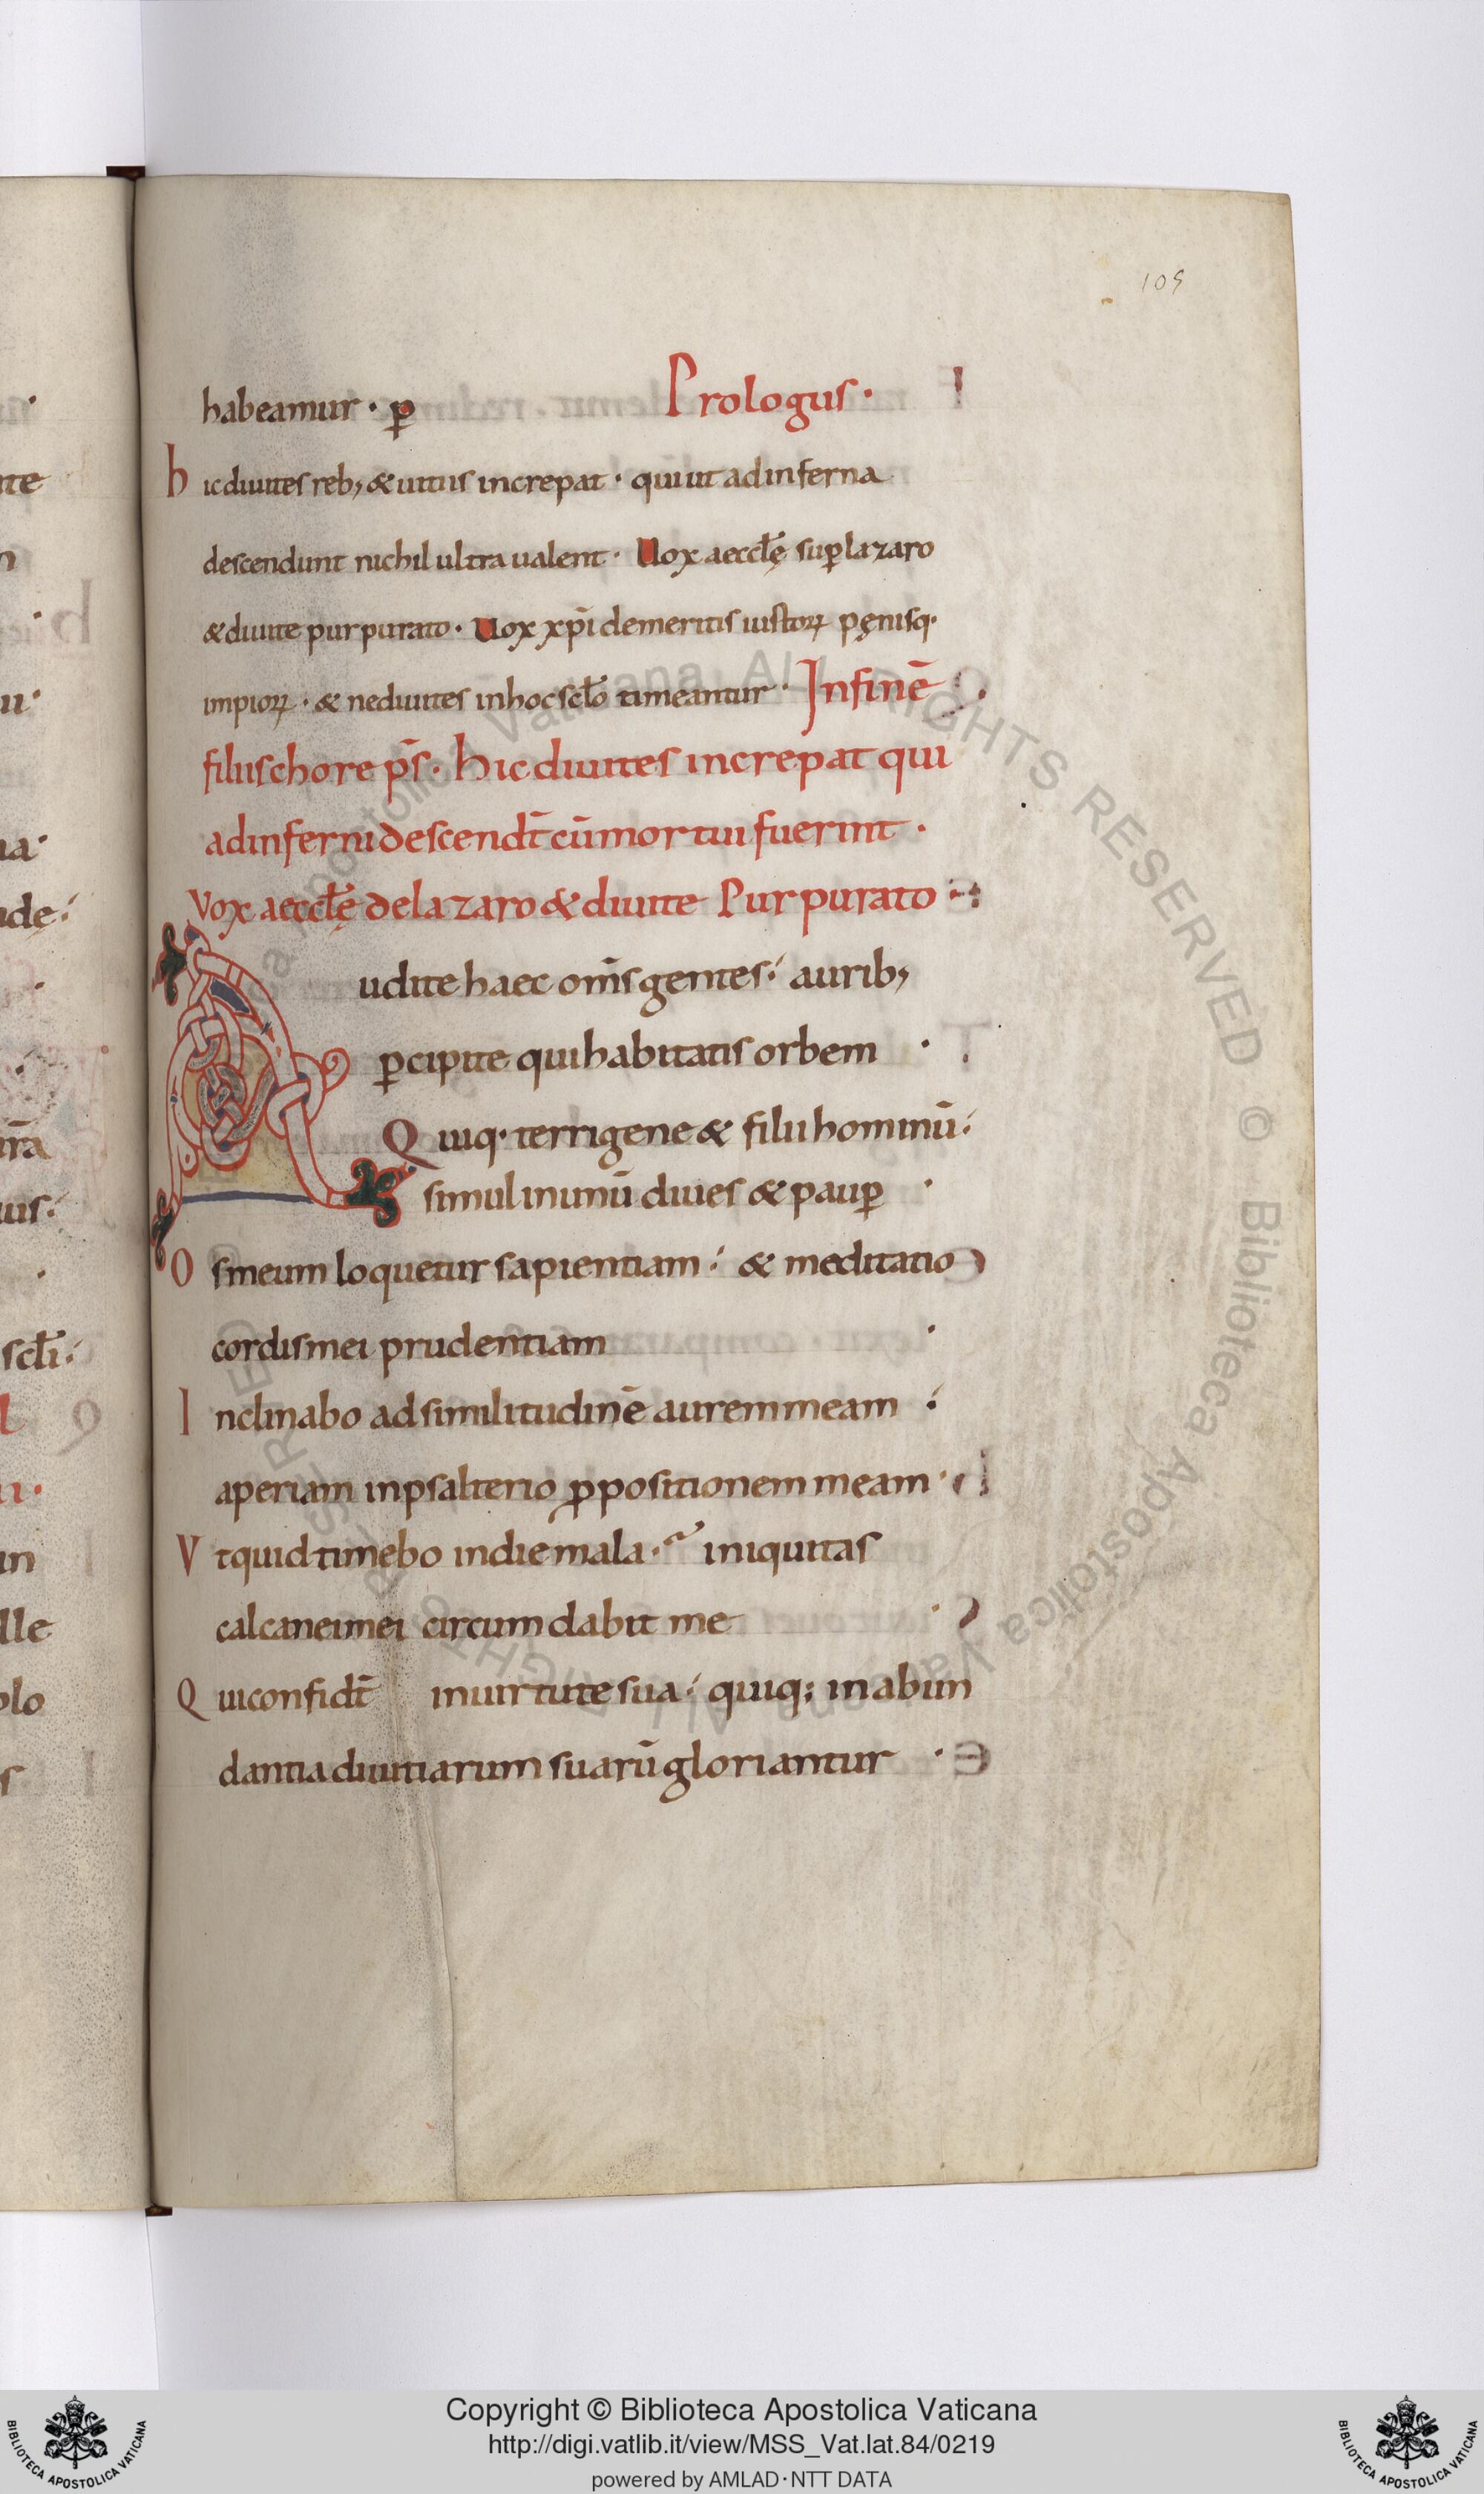 105
habeamur · p̄ Prologus ·
hic diuites reb; & uitiis increpat · qui ut ad inferna
descendunt nichil ultra ualent · Uox aeccłę sup̄ lazaro
& diuite purpurato · Uox xp̄i de meritis iustoꝝ pęnisq·
impioꝝ · & ne diuites in hoc scło timeantur · In finē
filiis chore ps̄ · hic diuites increpat qui
ad inferni descendt̄ cū mortui fuerint ·
Vox aeccłę de lazaro & diuite Purpurato
Audite haec om̄s gentes aurib;
ꝑcipite qui habitatis orbem ·
Quiq· terrigene & filii hominū
simul in unū diues & pauꝑ ·
Os meum loquetur sapientiam & meditatio
cordis mei prudentiam ·
Inclinabo ad similitudinē aurem meam
aperiam in psalterio ꝓpositionem meam ·
Vt quid timebo in die mala iniquitas
calcanei mei circumdabit me ·
Qui confidt̄ in uirtute sua quiq; in abun
dantia diuitiarum suarū gloriantur ·
© Biblioteca Apostolica Vaticana ALL RIGHTS RESERVED
Copyright © Biblioteca Apostolica Vaticana
http://digi.vatlib.it/view/MSS_Vat.lat.84/0219
powered by AMLAD·NTT DATA
BIBLIOTECA APOSTOLICA VATICANA
BIBLIOTECA APOSTOLICA VATICANA